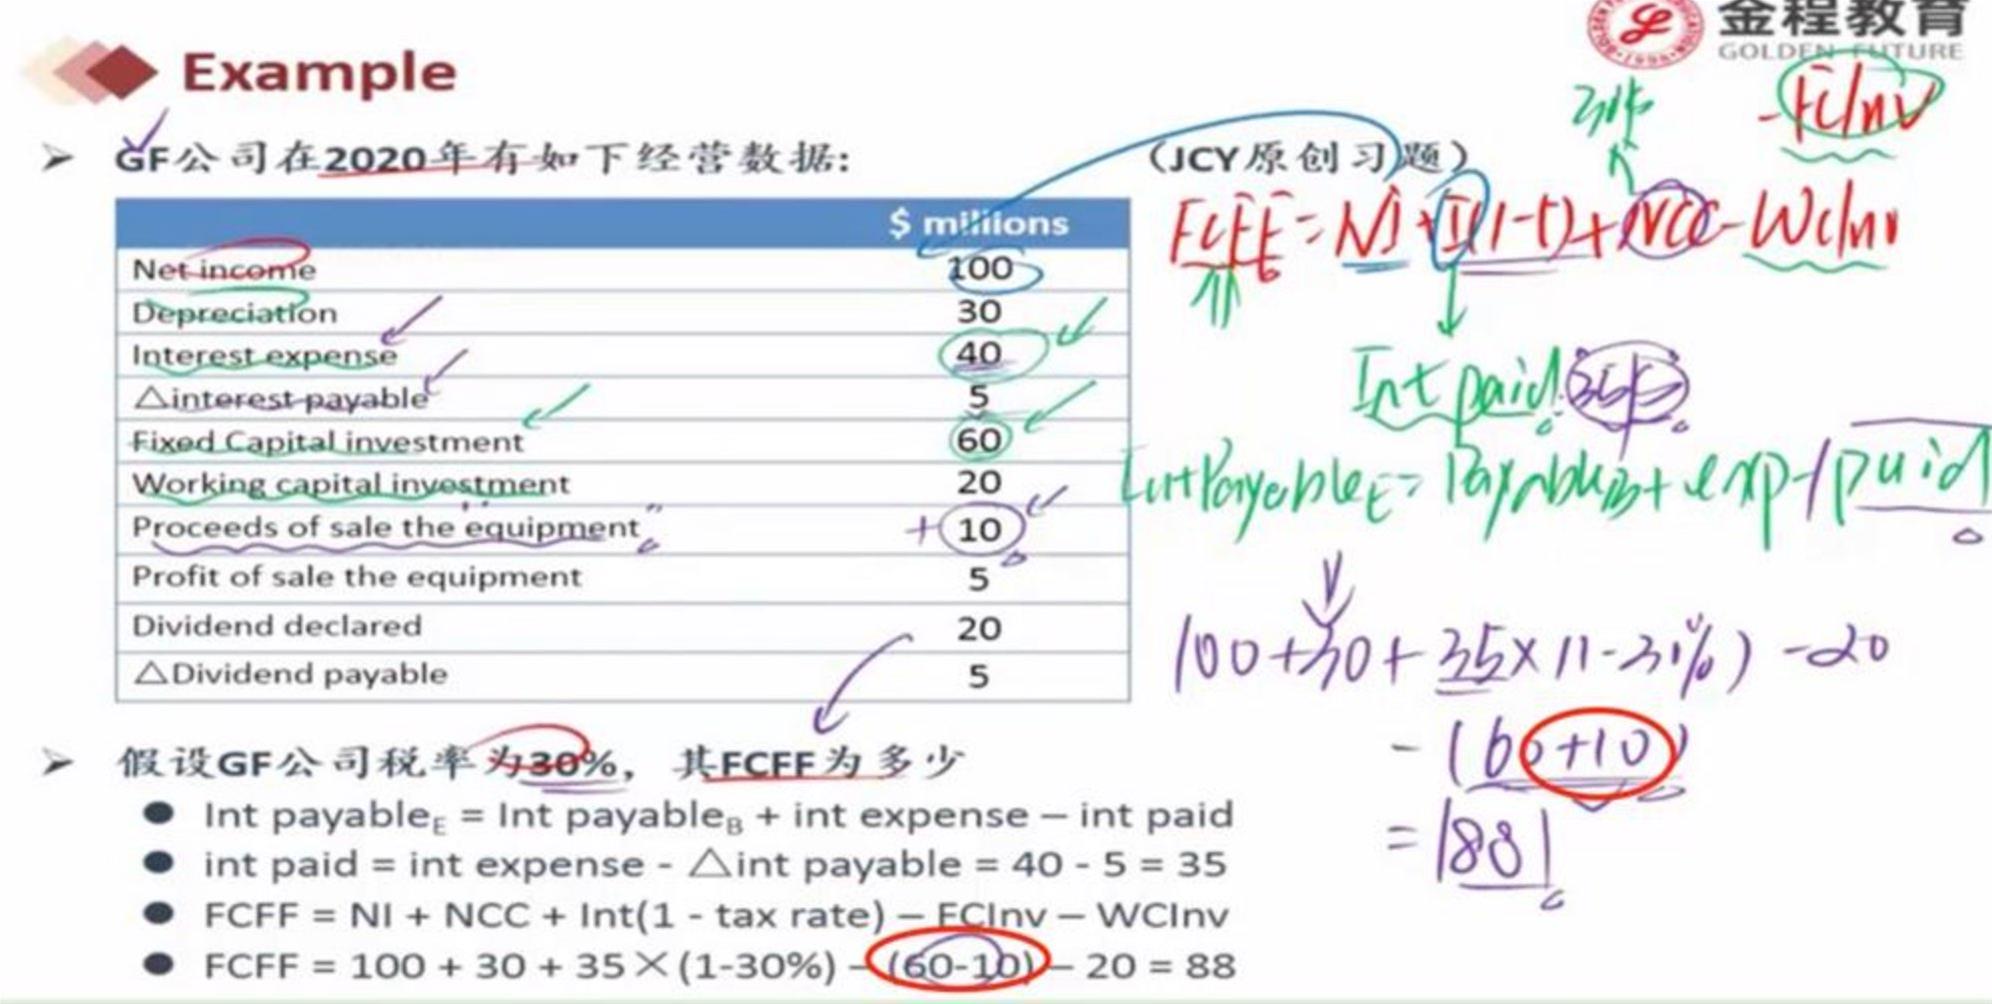 金程教育
GOLDEN FUTURE
Example
GF公司在2020年有如下经营数据:
(JCY原创习题)
- FCInv
FCFF = NI + I(1-t) + NCC - WCInv
$ millions
Net income 100
Depreciation 30
Interest expense 40
△interest payable 5
Fixed Capital investment 60
Working capital investment 20
Proceeds of sale the equipment + 10
Profit of sale the equipment 5
Dividend declared 20
△Dividend payable 5
Int paid
Int Payable E = Payable B + exp - paid
100 + 30 + 35 × (1-30%) - 20
- (60+10)
= 88
假设GF公司税率为30%, 其FCFF为多少
Int payableE = Int payableB + int expense – int paid
int paid = int expense - △int payable = 40 - 5 = 35
FCFF = NI + NCC + Int(1 - tax rate) – FCInv – WCInv
FCFF = 100 + 30 + 35×(1-30%) – (60-10) – 20 = 88